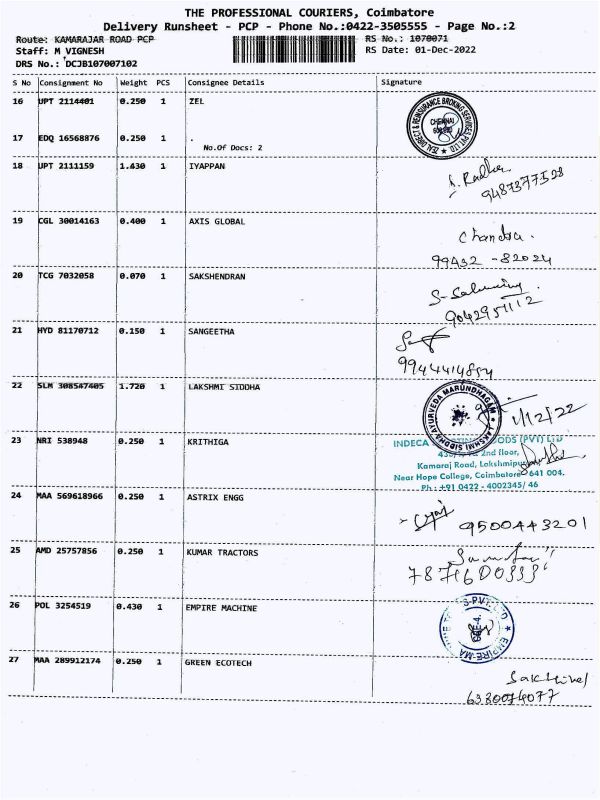 THE PROFESSIONAL COURIERS, Coimbatore
Delivery Runsheet - PCP - Phone No.:0422-3505555 - Page No.:2
Route: KAMARAJAR ROAD PCP RS No.: 1070071
Staff: M VIGNESH RS Date: 01-Dec-2022
DRS No.: DCJB107007102
S No Consignment No Weight PCS Consignee Details Signature
16 UPT 2114401 0.250 1 ZEL
ZEAL DIRECT & REINSURANCE BROKING SERVICES PVT LTD
CHENNAI
17 EDQ 16568876 0.250 1 .
No.Of Docs: 2
18 UPT 2111159 1.430 1 IYAPPAN
S. Radha
9487377528
19 CGL 30014163 0.400 1 AXIS GLOBAL
Chandra.
99432 - 82024
20 TCG 7032058 0.070 1 SAKSHENDRAN
9042951112
21 HYD 81170712 0.150 1 SANGEETHA
9944414854
22 SLM 308547405 1.720 1 LAKSHMI SIDDHA
LAKSHMI SIDDHA AYURVEDA MARUNDHAGAM
1/12/22
23 NRI 538948 0.250 1 KRITHIGA
INDECA (PVT) LTD
2nd floor,
Kamaraj Road, Lakshmipuram,
Near Hope College, Coimbatore - 641 004.
Ph : +91 0422 - 4002345/ 46
24 MAA 569618966 0.250 1 ASTRIX ENGG
9500443201
25 AMD 25757856 0.250 1 KUMAR TRACTORS
26 POL 3254519 0.430 1 EMPIRE MACHINE
27 MAA 289912174 0.250 1 GREEN ECOTECH
Sakthivel
6380074077